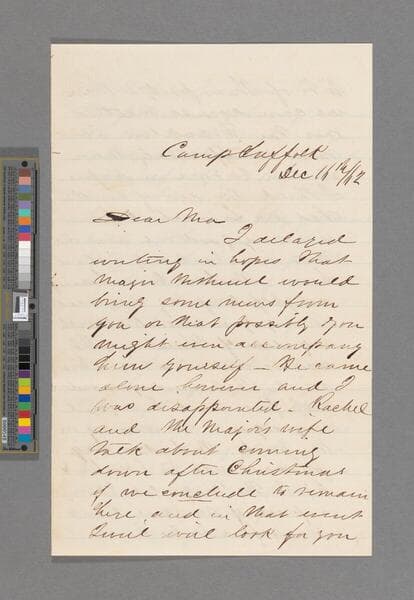 Camp Suffolk
Dec 16th/62
Dear Ma
I delayed
writing in hopes that
Major would
bring some news from
you or that possibly you
might even accompany
him yourself - He came
alone however and I
was disappointed - Rachel
and the Major's wife
talk about coming
down after Christmas
if we conclude to remain
here and in that event
I will look for you